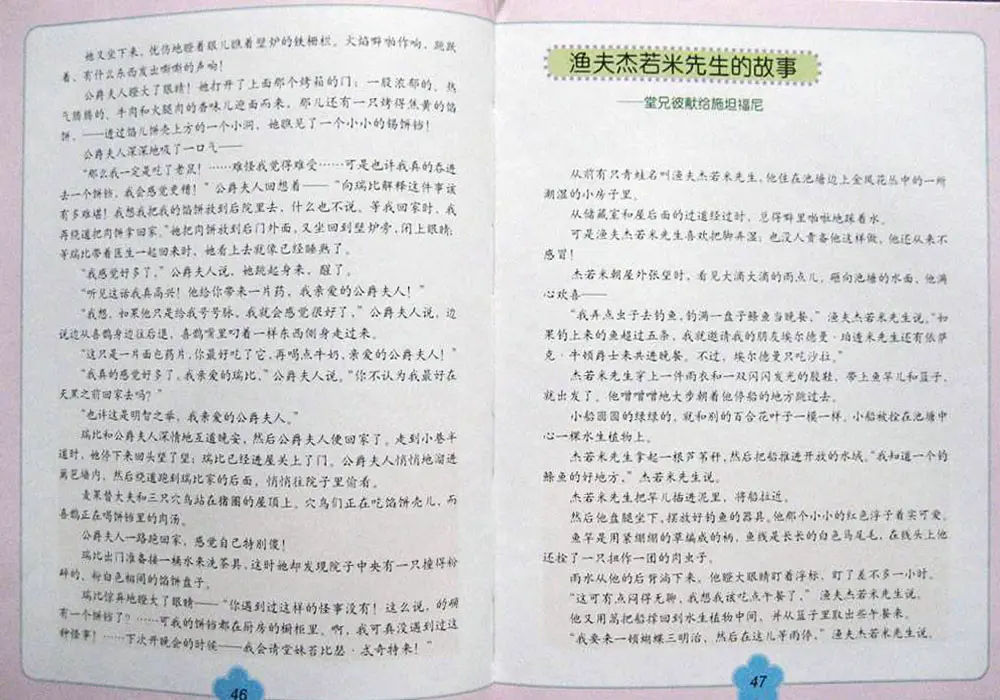 她又坐下来，忧伤地瞪着眼儿瞧着壁炉的铁栅栏。火焰噼啪作响，跳跃
着，有什么东西发出嘶嘶的声响！
公爵夫人瞪大了眼睛！她打开了上面那个烤箱的门：一股浓郁的、热
气腾腾的、牛肉和火腿肉的香味儿迎面而来，那儿还有一只烤得焦黄的馅
饼，——透过馅儿饼壳上方的一个小洞，她瞧见了一个小小的锡饼铛！
公爵夫人深深地吸了一口气——
“那么我一定是吃了老鼠！……难怪我觉得难受……可是也许我真的吞进
去一个饼铛，我会感觉更糟！”公爵夫人回想着——“向瑞比解释这件事该
有多难堪！我想我把我的馅饼放到后院里去，什么也不说。等我回家时，我
再绕道把肉饼拿回家。”她把肉饼放到后门外面，又坐回到壁炉旁，闭上眼睛；
等瑞比带着医生一起回来时，她看上去就像已经睡熟了。
“我感觉好多了，”公爵夫人说，她跳起身来，醒了。
“听见这话我真高兴！他给你带来一片药，我亲爱的公爵夫人！”
“我想，如果他只是给我号号脉，我就会感觉很好了，”公爵夫人说，边
说边从喜鹊身边往后退，喜鹊嘴里叼着一样东西侧身走过来。
“这只是一片面包药片，你最好吃了它，再喝点牛奶，亲爱的公爵夫人！”
“我真的感觉好多了，我亲爱的瑞比，”公爵夫人说。“你不认为我最好在
天黑之前回家去吗？”
“也许这是明智之举，我亲爱的公爵夫人。”
瑞比和公爵夫人深情地互道晚安，然后公爵夫人便回家了。走到小巷半
道时，她停下来回头望了望；瑞比已经进屋关上了门。公爵夫人悄悄地溜进
篱笆墙内，然后绕道跑到瑞比家的后面，悄悄往院子里偷看。
麦茱替大夫和三只穴鸟站在猪圈的屋顶上。穴鸟们正在吃馅饼壳儿，而
喜鹊正在喝饼铛里的肉汤。
公爵夫人一路跑回家，感觉自己特别傻！
瑞比出门准备接一桶水来洗茶具，这时她却发现院子中央有一只撞得粉
碎的、粉白色相间的馅饼盘子。
瑞比惊异地瞪大了眼睛——“你遇到过这样的怪事没有！这么说，的确
有一个饼铛了？……可我的饼铛都在厨房的橱柜里。啊，我可真没遇到过这
种怪事！……下次开晚会的时候——我会请堂妹苔比瑟·忒奇特来！”
46
渔夫杰若米先生的故事
——堂兄彼献给施坦福尼
从前有只青蛙名叫渔夫杰若米先生，他住在池塘边上金凤花丛中的一所
潮湿的小房子里。
从储藏室和屋后面的过道经过时，总得噼里啪啦地踩着水。
可是渔夫杰若米先生喜欢把脚弄湿；也没人责备他这样做，他还从来不
感冒！
杰若米朝屋外张望时，看见大滴大滴的雨点儿，砸向池塘的水面，他满
心欢喜——
“我弄点虫子去钓鱼，钓满一盘子鲦鱼当晚餐，”渔夫杰若米先生说。“如
果钓上来的鱼超过五条，我就邀请我的朋友埃尔德曼·珀透米先生还有依萨
克·牛顿爵士来共进晚餐。不过，埃尔德曼只吃沙拉。”
杰若米先生穿上一件雨衣和一双闪闪发光的胶鞋，带上鱼竿儿和篮子，
就出发了。他噌噌噌地大步朝着他停船的地方跳过去。
小船圆圆的绿绿的，就和别的百合花叶子一模一样。小船被拴在池塘中
心一棵水生植物上。
杰若米先生拿起一根芦苇秆，然后把船推进开放的水域。“我知道一个钓
鲦鱼的好地方，”杰若米先生说。
杰若米先生把竿儿插进泥里，将船拉近。
然后他盘腿坐下，摆放好钓鱼的器具。他那个小小的红色浮子着实可爱。
鱼竿是用紧绷绷的草编成的柄，鱼线是长长的白色马尾毛，在线头上他
还拴了一只扭作一团的肉虫子。
雨水从他的后背淌下来，他瞪大眼睛盯着浮标，盯了差不多一小时。
“这可有点闷得无聊，我想我该吃点午餐了，”渔夫杰若米先生说。
他又用篙把船撑回到水生植物中间，并从篮子里取出些午餐来。
“我要来一顿蝴蝶三明治，然后在这儿等雨停，”渔夫杰若米先生说。
47